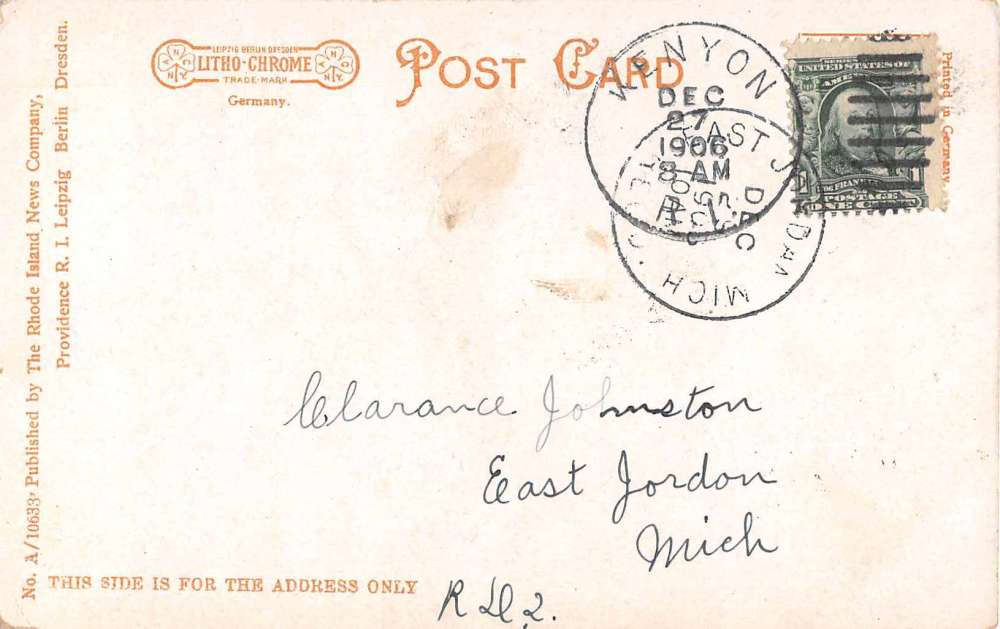 No. A/10633, Published by The Rhode Island News Company,
Providence R. I. Leipzig Berlin Dresden.
LEIPZIG BERLIN DRESDEN
LITHO-CHROME
TRADE-MARK
Germany.
POST CARD
KENYON
DEC
27
1906
8 AM
R.I.
EAST JORDAN
DEC
MICH
SERIES
UNITED STATES OF
AMERICA
FRANKLIN
POSTAGE
ONE CENT
Printed in Germany.
Clarance Johnston
East Jordon
Mich
R D 2.
THIS SIDE IS FOR THE ADDRESS ONLY